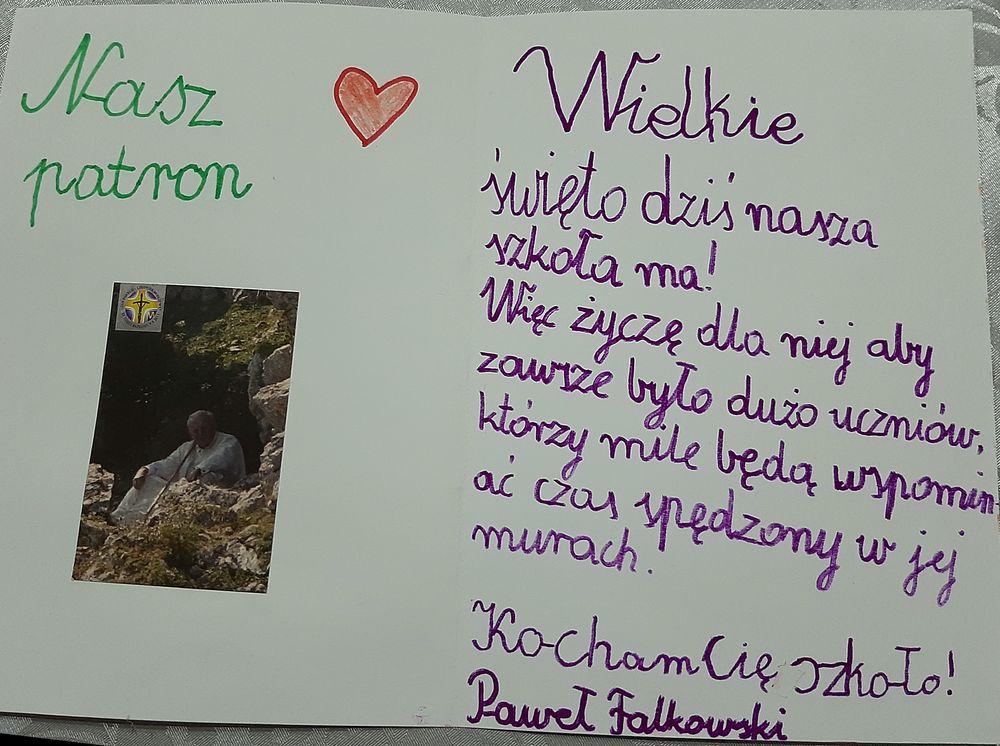 Nasz
patron
Wielkie
święto dziś nasza
szkoła ma!
Więc życzę dla niej aby
zawsze było dużo uczniów,
którzy mile będą wspomin-
ać czas spędzony w jej
murach.
Kocham Cię szkoło!
Paweł Falkowski